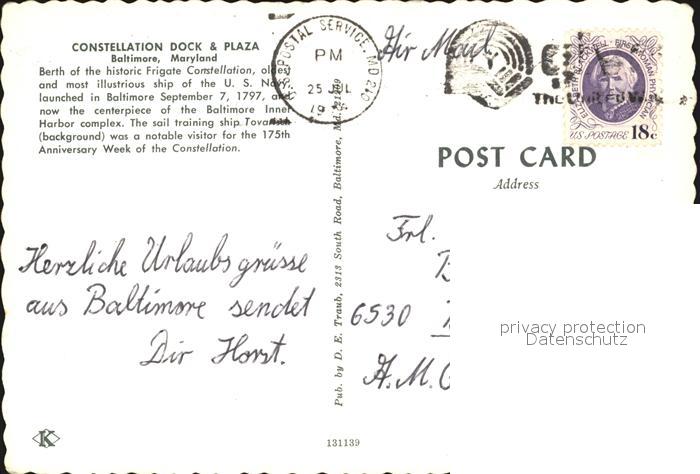 CONSTELLATION DOCK & PLAZA
Baltimore, Maryland
Berth of the historic Frigate Constellation, oldest
and most illustrious ship of the U. S. Navy
launched in Baltimore September 7, 1797, and
now the centerpiece of the Baltimore Inner
Harbor complex. The sail training ship Tovarish
(background) was a notable visitor for the 175th
Anniversary Week of the Constellation.
POSTAL SERVICE, MD
PM
25
19
Air Mail
The United Way
ELIZABETH BLACKWELL · FIRST WOMAN PHYSICIAN
US POSTAGE 18c
POST CARD
Address
Herzliche Urlaubsgrüsse
aus Baltimore sendet
Dir Horst.
Pub. by D. E. Traub, 2313 South Road, Baltimore, Md.
Frl.
6530
privacy protection
Datenschutz
K
131139